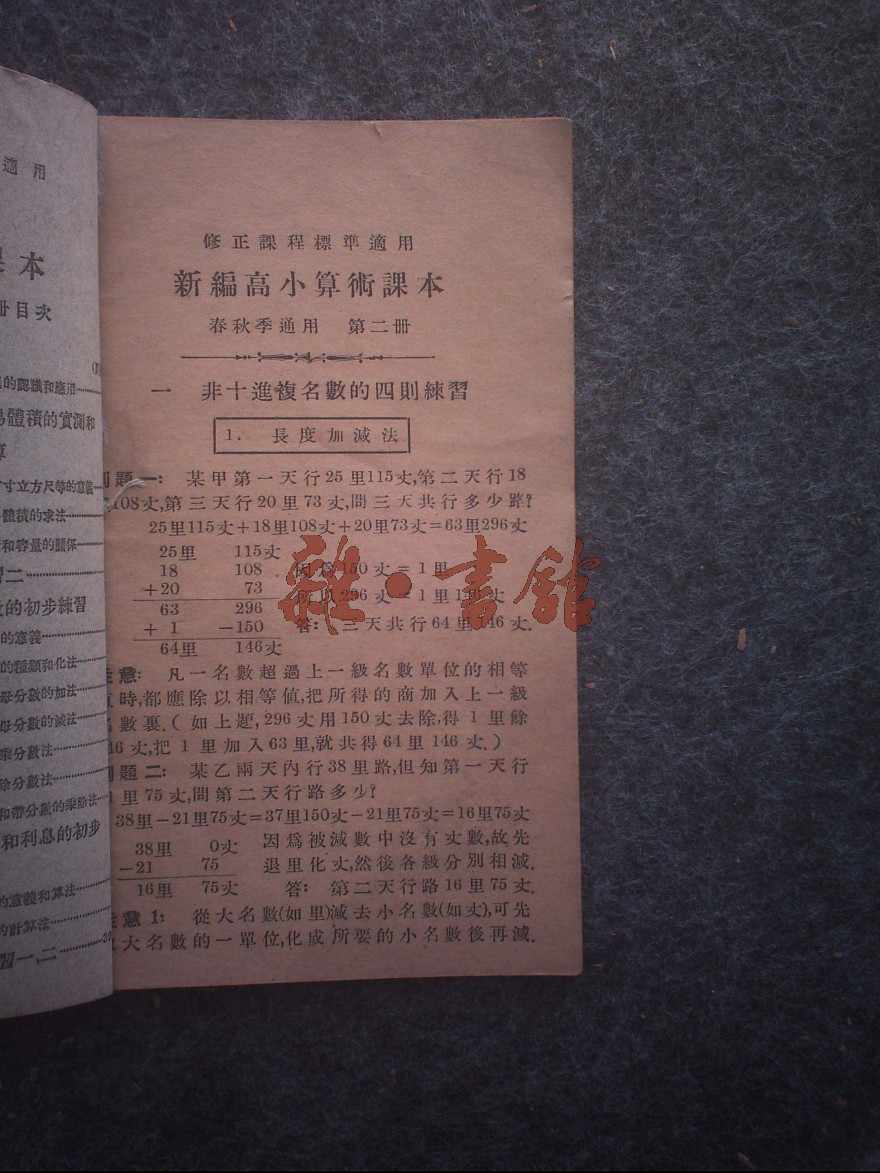 適用
課本
冊目次
的認識和應用
易體積的實測和
算
寸立方尺等的意義
體積的求法
和容量的關係
習二
的初步練習
的意義
的種類和化法
母分數的加法
母分數的減法
乘分數法
除分數法
和帶分數的乘除法
和利息的初步
的意義和算法
的計算法
習一,二
修正課程標準適用
新編高小算術課本
春秋季通用 第二冊
一 非十進複名數的四則練習
1. 長度加減法
例題一: 某甲第一天行25里115丈,第二天行18
108丈,第三天行20里73丈,問三天共行多少路?
25里115丈+18里108丈+20里73丈=63里296丈
25里 115丈
18 108 因爲150丈=1里
+20 73 所以296丈=1里146丈
63 296
+ 1 -150 答: 三天共行64里146丈.
64里 146丈
注意: 凡一名數超過上一級名數單位的相等
值時,都應除以相等值,把所得的商加入上一級
名數裏.(如上題,296丈用150丈去除,得1里餘
146丈,把1里加入63里,就共得64里146丈.)
例題二: 某乙兩天內行38里路,但知第一天行
里75丈,問第二天行路多少?
38里-21里75丈=37里150丈-21里75丈=16里75丈
38里 0丈 因爲被減數中沒有丈數,故先
-21 75 退里化丈,然後各級分別相減.
16里 75丈 答: 第二天行路16里75丈.
注意1: 從大名數(如里)減去小名數(如丈),可先
大名數的一單位,化成所要的小名數後再減.
雜·書館